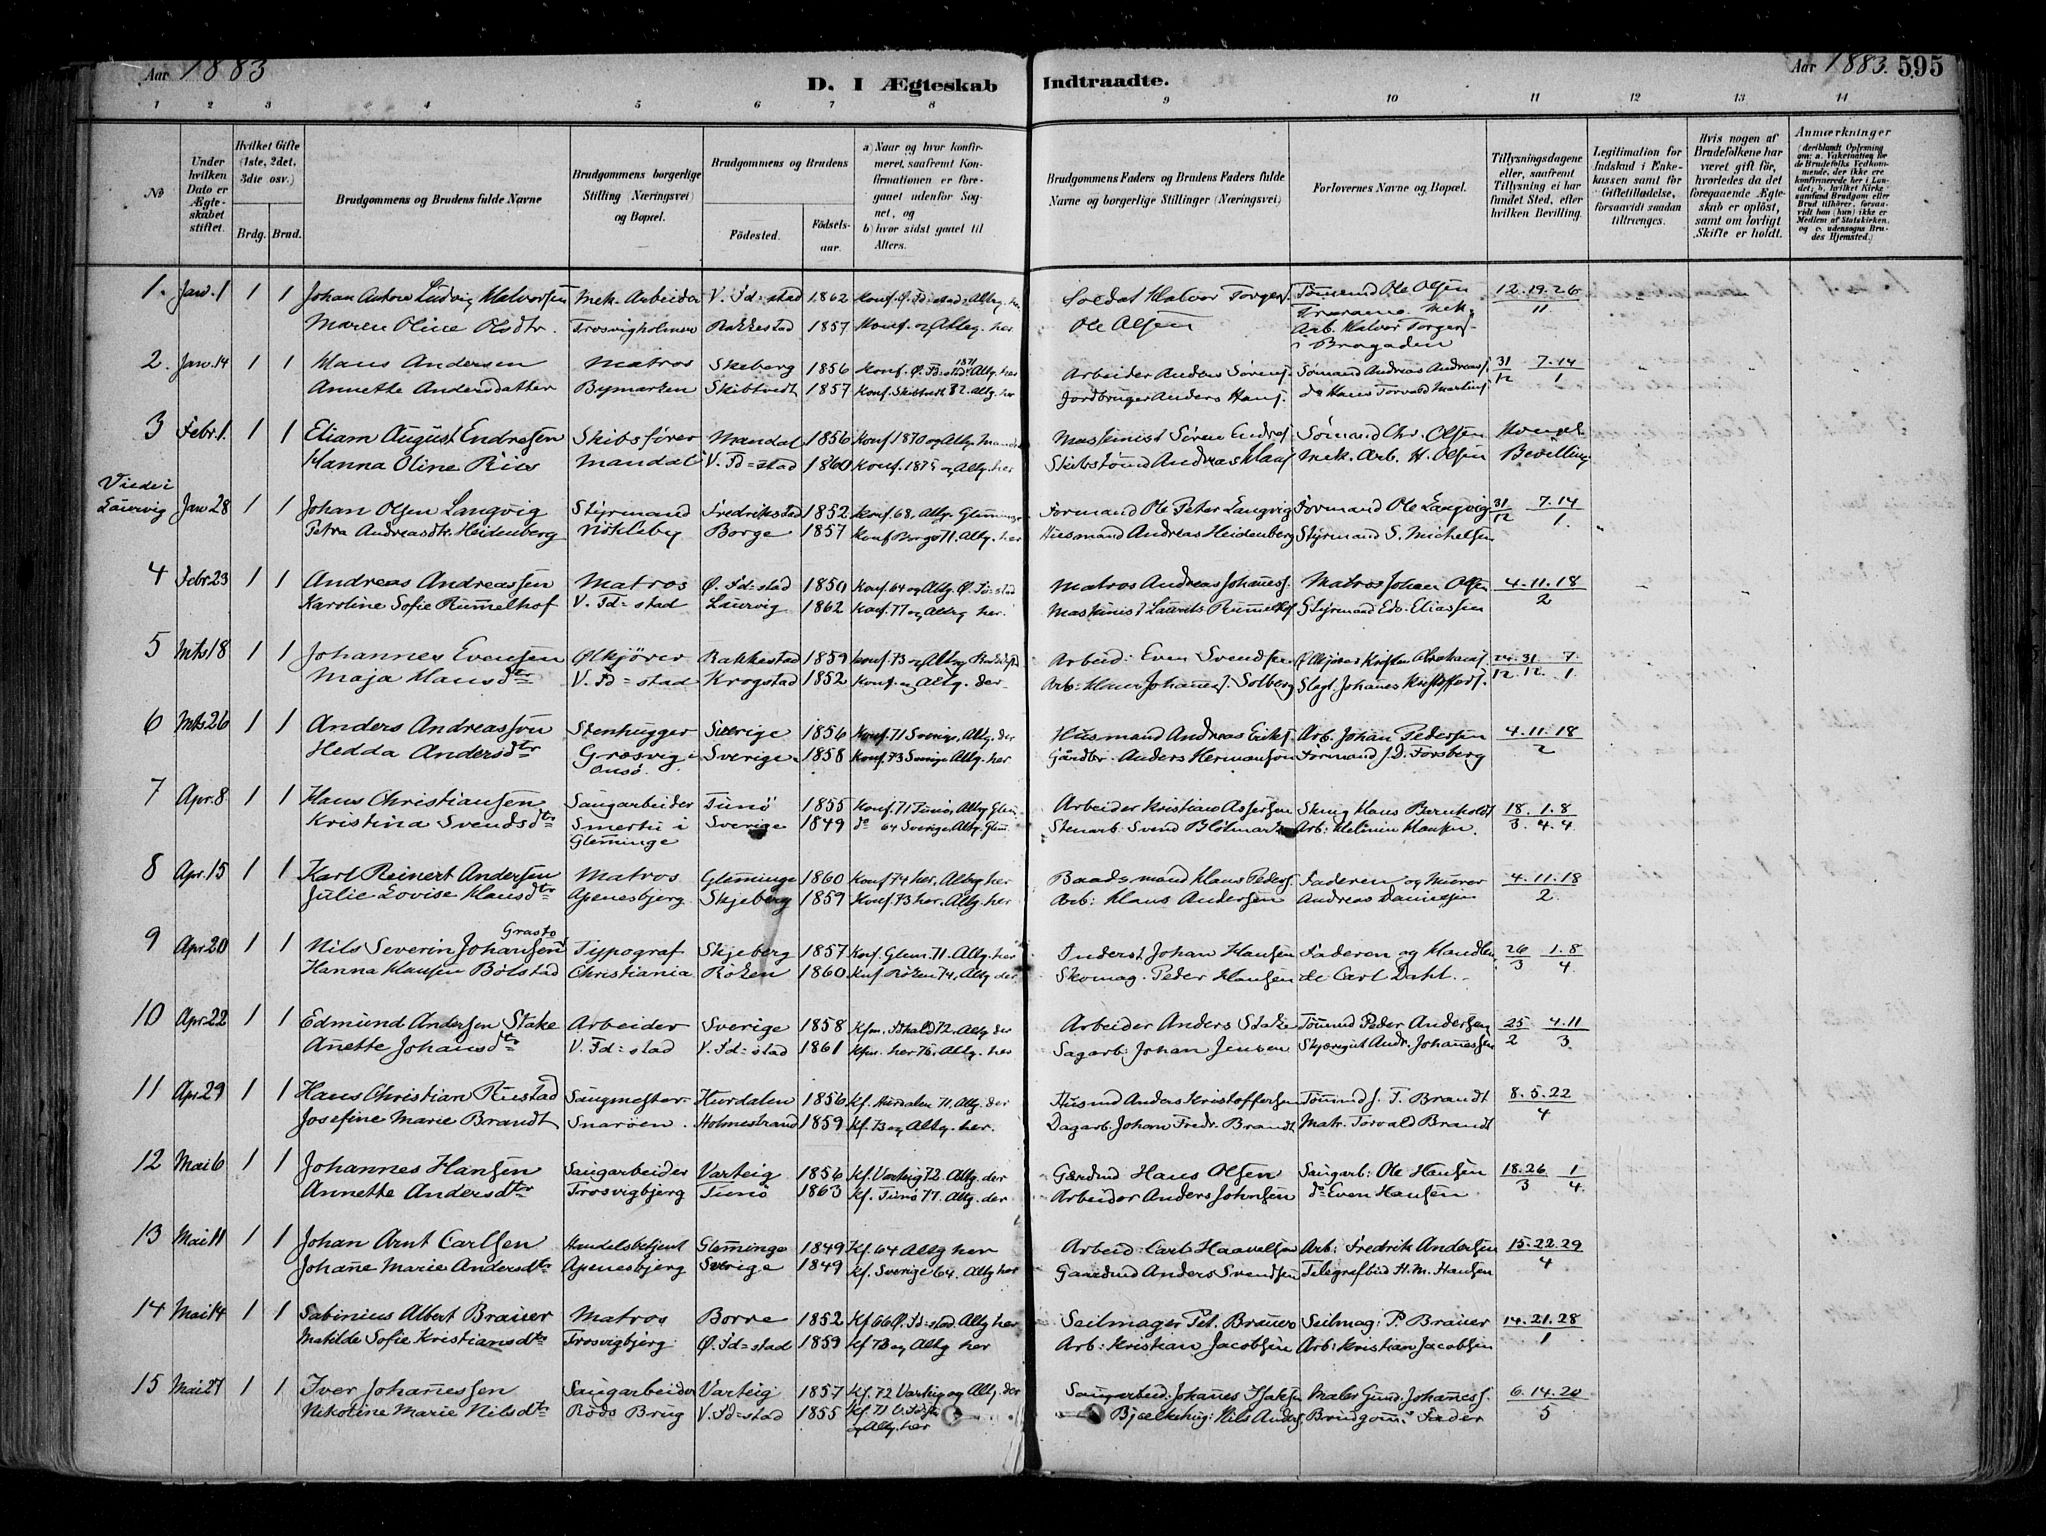 Aar 1883
D. I Ægteskab Indtraadte.
Aar 1883. 595
1 2 3 4 5 6 7 8 9 10 11 12 13 14
No
Under hvilken Dato er Ægteskabet stiftet.
Hvilket Gifte (1ste, 2det, 3die osv.)
Brdg. Brud.
Brudgommens og Brudens fulde Navne
Brudgommens borgerlige Stilling (Næringsvei) og Bopæl.
Brudgommens og Brudens
Fødested. Fødselsaar.
a) Naar og hvor konfirmeret, saafremt Konfirmationen er foregaaet udenfor Sognet, og
b) hvor sidst gaaet til Alters.
Brudgommens Faders og Brudens Faders fulde Navne og borgerlige Stillinger (Næringsvei)
Forlovernes Navne og Bopæl.
Tillysningsdagene eller, saafremt Tillysning ei har fundet Sted, efter hvilken Bevilling.
Legitimation for Indskud i Enkekassen samt for Giftetilladelse, forsaavidt saadan tiltrænges.
Hvis nogen af Brudefolkene har været gift, hvorledes da det foregaaende Ægteskab er opløst, samt om lovligt Skifte er holdt.
Anmærkninger (deriblandt Oplysning om: a. Vakcination for de Brudefolks Vedkommende, der ikke ere konfirmerede her i Landet; b. hvilket Kirkesamfund Brudgom eller Brud tilhører, forsaavidt han (hun) ikke er Medlem af Statskirken, og c. udensogns Brudes Hjemsted.)
1. Janr. 1 1 1 Johan Anton Ludvig Halvorsen Mek. Arbeider V. Fd=stad 1862 Konf. Ø. Fd:stad. Altg. her Soldat Halvor Torgers. Tømmd Ole Olsen 12.19.26
Maren Oline Olsdtr. Trosvigholmen Rakkestad 1857 Konf. og Altg. her Ole Olsen Mek. 11
Arb. Halvor Torgers.
2. Janr. 14 1 1 Hans Andersen Matros Skeberg 1856 Konf. Ø. Fd=stad 1871 Altg. her Arbeider Anders Sørens. Sømand Andreas Andreas. 31 7.14
Annette Andersdatter Bymarken Skibtvedt 1857 Konf. Skibtvedt 82. Altg. her Jordbruger Anders Hans. do Hans Torvald Martins. 12 1
3 Febr. 1. 1 1 Eliam August Endresen Skibsfører Mandal 1856 Konf 1870 og Altg. Mandal Maskinist Søren Endres. Sømand Chr. Olsen Kongel.
Hanna Oline Riis Mandal V. Fd=stad 1860 Konf. 1875 og Altg. her Skibstømd Andreas Klaus. Mek. Arb. H. Olsen Bevilling
Viede i
Laurvig Jan 28 1 1 Johan Olsen Langvig Styrmand Fredrikstad 1852 Konf. 68, Altg. Glemminge Formand Ole Peter Langvig Formand Ole Langvig 31 7.14
Petra Andreasdtr. Heidenberg Nökleby Borge 1857 Konf Borge 71. Altg. her Husmand Andreas Heidenberg Styrmand S. Michelsen 12 1.
4 Febr. 23 1 1 Andreas Andreassen Matros Ø. Fd=stad 1850 Konf. 64 og Altg. Ø. Fd=stad Matros Andreas Johannes. Matros Johan Olsen 4.11.18
Karoline Sofie Rummelhof V. Fd=stad Laurvig 1862 Konf. 77 og Altg her. Maskinist Laurits Rummelhof Styrmand Edv. Eliassen 2
5 Mts 18 1 1 Johannes Evensen Ølkjører Rakkestad 1859 Konf. 73 og Altg Rakkest. Arbeid: Even Svendsen Ølkjører Kristen Abrahams. 24. 31 7.
Maja Hansdtr V. Fd=stad Krogstad 1852 Konf. og Altg. der. Arb: Hans Johannes. Solberg Slagt. Johannes Kristoffers. 12. 12. 1
6 Mts 26 1 1 Anders Andreasson Stenhugger Sverige 1856 Konf. 71 Sverige, Altg. der Husmand Andreas Eriks. Arb. Johan Pedersen 4.11.18
Hedda Andersdtr Græsvig i Sverige 1858 Konf. 73 Sverige Altg. her Gårdbr. Anders Hermanson Formand J. D. Forsberg 2
Onsø.
7 Apr. 8 1 1 Hans Christiansen Saugarbeider Tunø 1855 Konf. 71 Tunø, Altg Glem. Arbeider Kristian Assersen Skrog Hans Bernholdt 18. 1.8
Kristina Svendsdtr Smertu i Sverige 1849 do 64 Sverige, Altg. Glem. Stenarb. Svend Arb: Helmin Hansen. 3 4. 4
Glemminge
8 Apr. 15 1 1 Karl Reinert Andersen Matros Glemminge 1860 Konf 74 her, Altg her Baadsmand Hans Peders. Faderen og Murer 4.11.18
Julie Lovise Hansdtr Apenesbjerg. Skjeberg 1859 Konf. 73 her, Altg. her Arb: Hans Andersen Andreas Danielsen 2
9 Apr. 20 1 1 Nils Severin Johansen Grasto Typograf Skjeberg 1857 Konf. Glem. 71. Altg. her Inderst Johan Hansen Faderen og Handlen- 26 1.8
Hanna Hansen Bölstad Christiania Röken 1860 Knf Röken 74, Altg der Skomag. Peder Hansen de Carl Dahl. 3 4
10 Apr. 22 1 1 Edmund Andersen Stake Arbeider Sverige 1858 Kfm. Fdhald 72. Altg der Arbeider Anders Stake Tømmd Peder Andersen 25 4.11
Anette Johansdtr V. Fd=stad V. Fd=stad 1861 Kfm. her 76. Altg. her Sagarb: Johan Jensen Skjærgut Andr. Johannessen 2 3
11 Apr 29 1 1 Hans Christian Rustad Saugmester Hurdalen 1856 Kf. Hurdalen 71. Altg. der Husmd Anders Kristoffersen Tømmd J. F. Brandt 8. 5. 22
Josefine Marie Brandt Snaröen. Holmestrand 1859 Kf. 73 og Altg. her. Dagarb. Johan Fredr. Brandt Matr. Torvald Brandt 4
12 Mai 6 1 1 Johannes Hansen Saugarbeider Varteig 1856 Kf. Varteig 72. Altg. der Gårdmd Hans Olsen Saugarb: Ole Hansen 18. 26 1
Annette Andersdtr Trosvigbjerg Tunø 1863 Kf. Tunø 77. Altg. der Arbeider Anders Johnsen do Even Hansen 3 4
13 Mai 11 1 1 Johan Arnt Carlsen Handelsbetjent Glemminge 1849 Kf. 64 Altg her Arbeid: Carl Haavelsen Arb: Fredrik Andersen 15. 22. 29
Johanne Marie Andersdtr Apenesbjerg Sverige 1849 Kf. Sverige 64. Altg her Gaardmd Anders Svendsen Telegrafbud H. M. Hansen 4
14 Mai 14 1 1 Sabinius Albert Brauer Matros Borre 1852 Kf 66 Ø. Fd=stad Altg her Seilmager Pet. Brauer Seilmag: P. Brauer 14. 21. 28
Matilde Sofie Kristiansdtr Trosvigbjerg Ø. Fd=stad 1859 Kf 73 og Altg her Arb: Kristian Jacobsen Arb: Kristian Jacobsen 1
15 Mai 27 1 1 Iver Johannessen Saugarbeider Varteig 1857 Kf. 72 Varteig og Altg. der Saugarbeid. Johannes Isaksen Maler Gund. Johannes. 6. 14. 20
Nikoline Marie Nilsdtr Röds Brug V. Fd=stad 1855 Kf. 71 V. Fdst. Bjælkehug: Nils Anders. Brudgoms Fader 5
og Altg. her